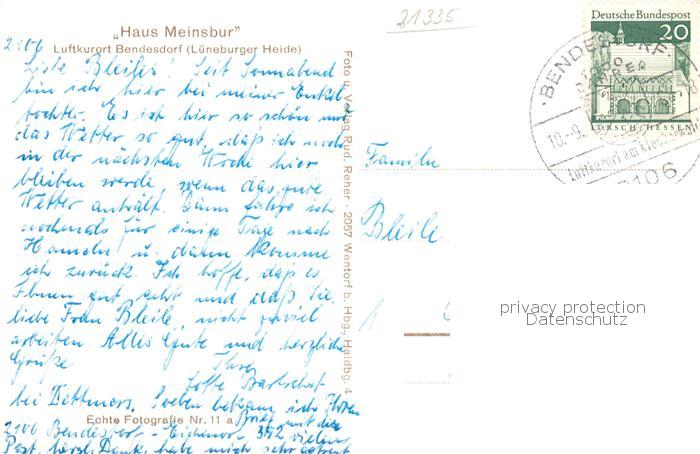 21335
„Haus Meinsbur"
Luftkurort Bendesdorf (Lüneburger Heide)
2106
Liebe Bleile's! Seit Sonnabend
bin ich hier bei meiner Enkel-
tochter. Es ist hier so schön und
das Wetter so gut, daß ich noch
in der nächsten Woche hier
bleiben werde, wenn das gute
Wetter anhält. Dann fahre ich
nochmals für einige Tage nach
Hameln u. dann komme
ich zurück. Ich hoffe, daß es
Ihnen gut geht und daß Sie,
liebe Frau Bleile, nicht zuviel
arbeiten. Alles Gute und herzliche
Grüße
Ihre
Lotte
bei Dettmers. Soeben bekam ich Ihren
Brief mit der
Echte Fotografie Nr. 11 a
2106 Bendesdorf -
Post, herzl. Dank, habe mich sehr gefreut
Foto u. Verlag Rud. Reher · 2057 Wentorf b. Hbg., Haidbg. 4
Familie
Bleile
Deutsche Bundespost
20
LORSCH/HESSEN
BENDESDORF
10.-9.
Luftkurort am Kleckerwald
2106
privacy protection
Datenschutz